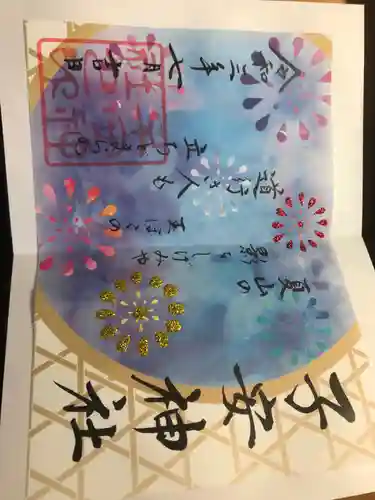 子安神社
夏山の
影をしげみや
玉ほこの
道行き人も
立ちどまるらむ
令和二年七月吉日